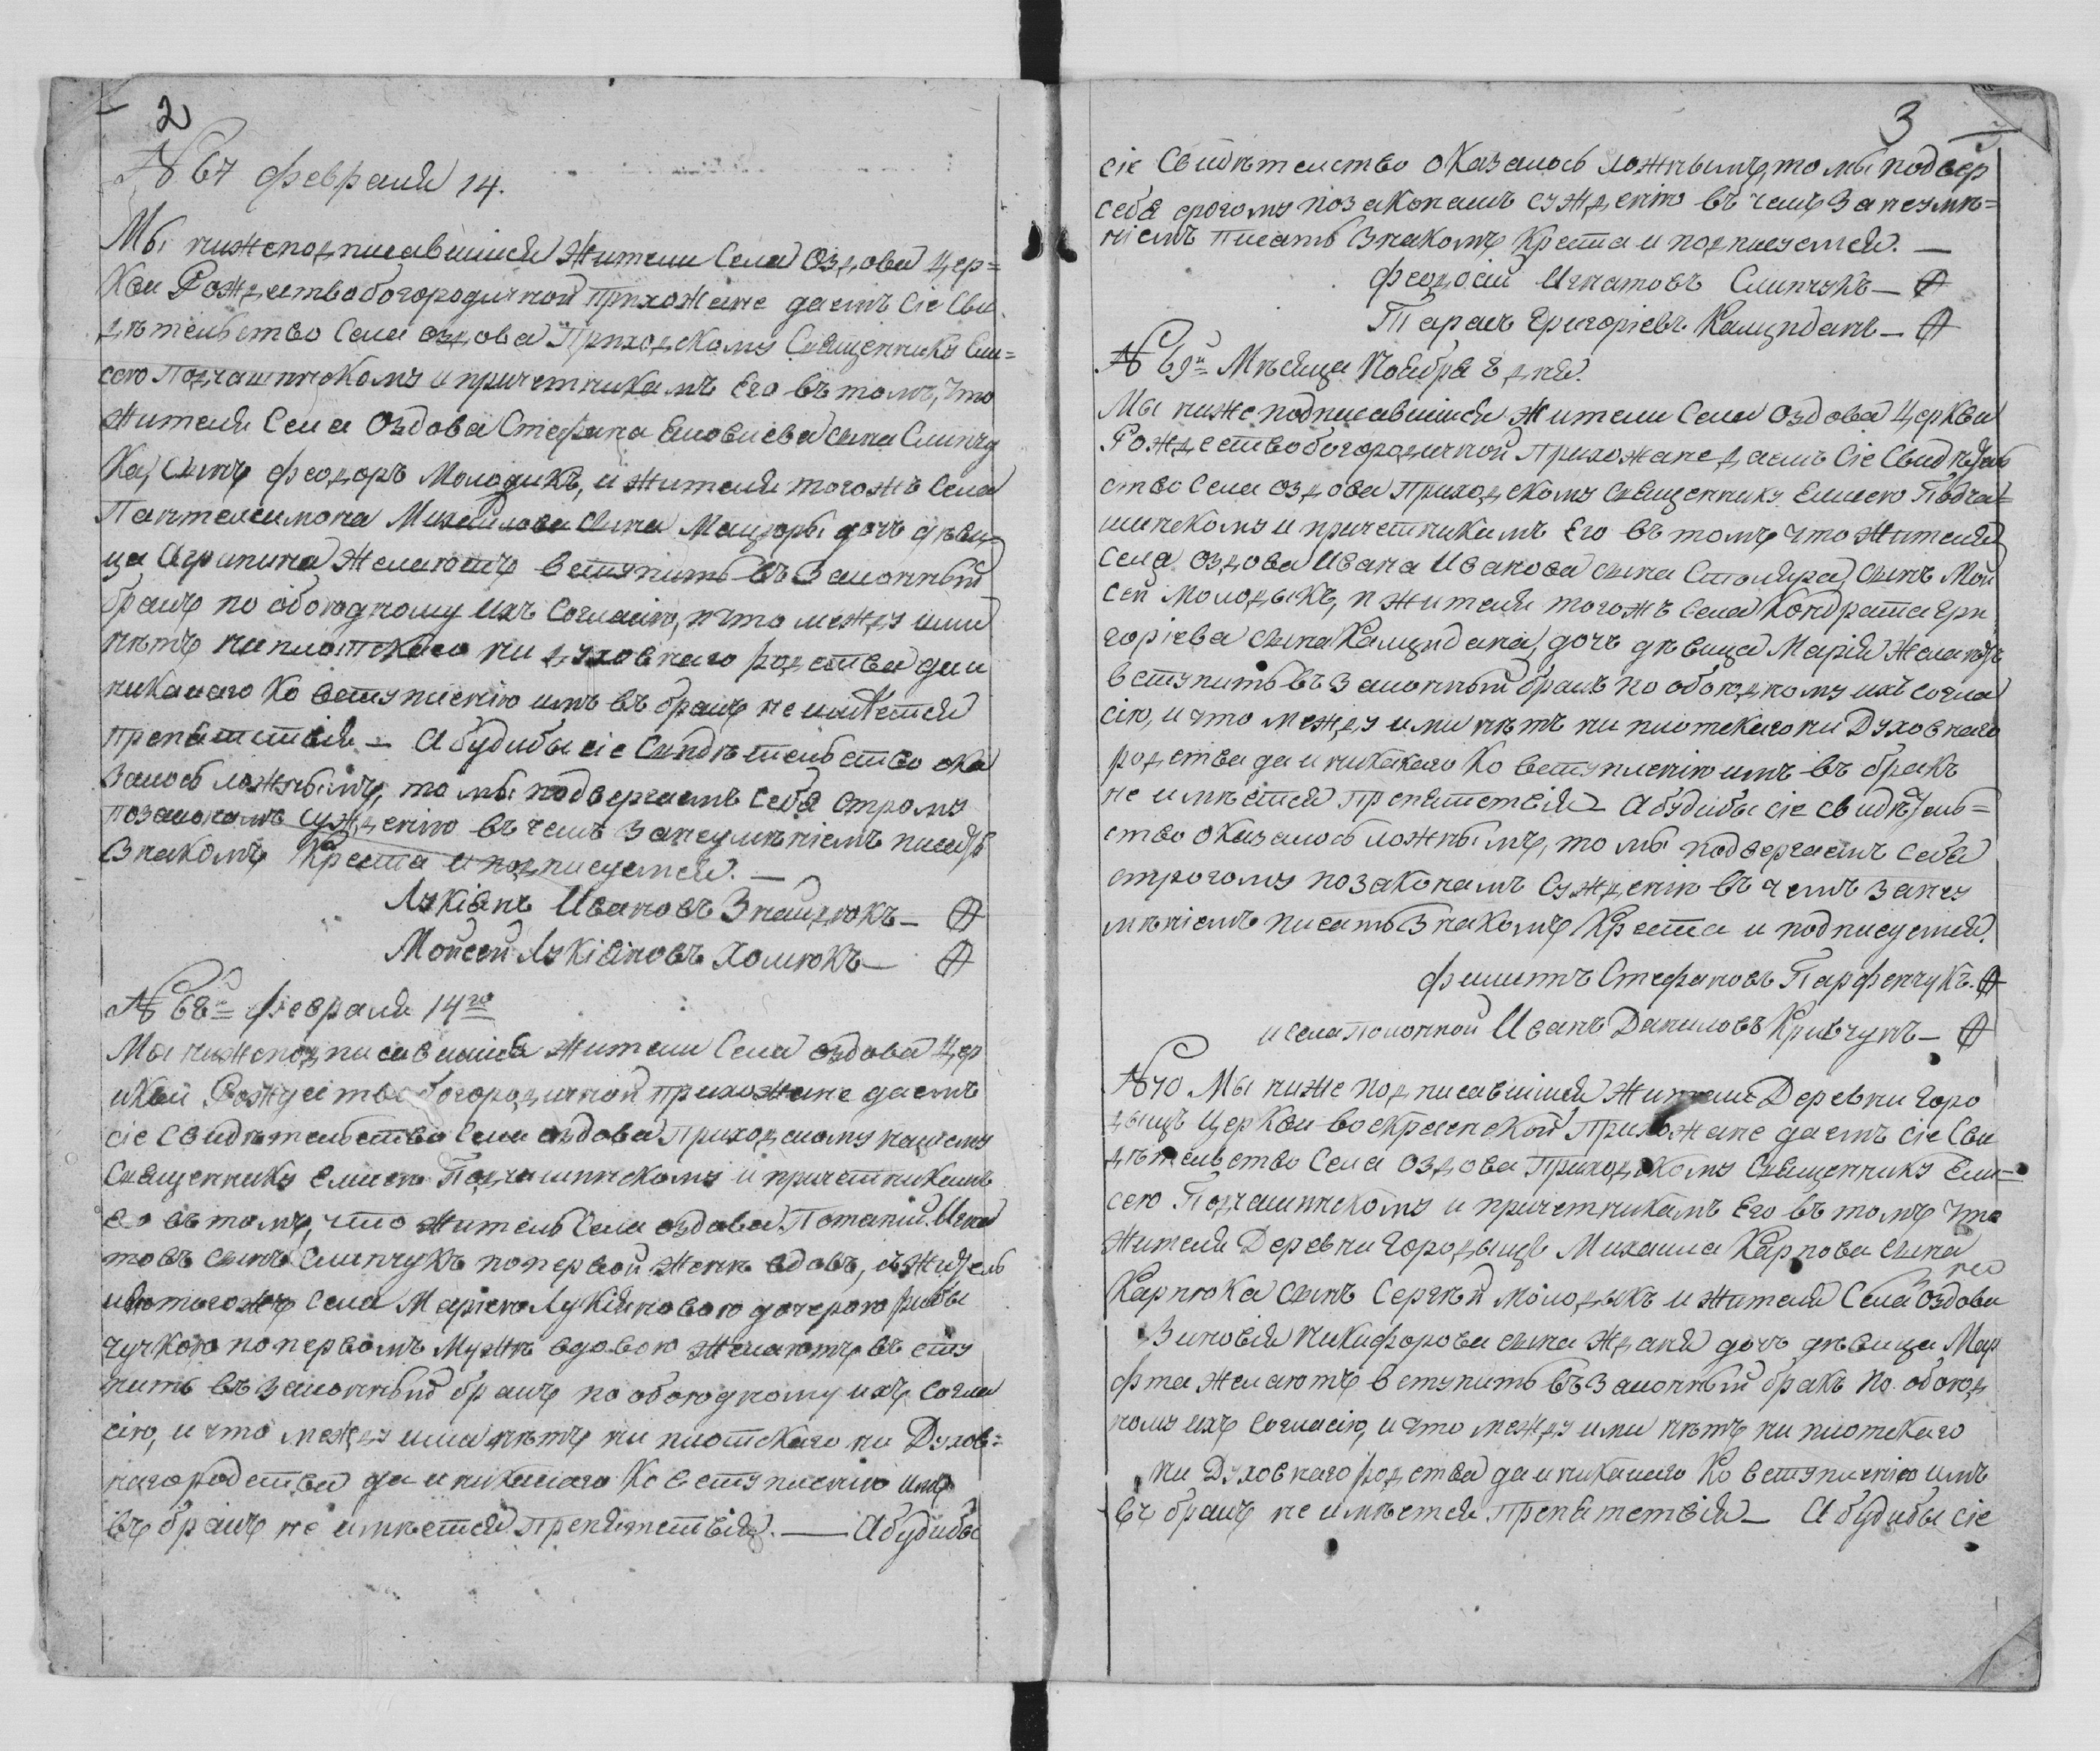 2
№ 67 февраля 14.
Мы нижеподписавшиися жители Села Оздова Цер=
кви Рождествобогородичной прихожане даемъ Сіе Сви
дѣтельство Села Оздова Приходскому Священнику Ели=
сею Подчашинскому и причетникамъ Его въ томъ, что
жителя Села Оздова Стефана сына Слипчу
ка, сынъ феодоръ Молодикъ, и жителя тогожъ Села
Пантелеимона Михайлова сына Мацюры дочь дѣви
ца Агрипина желаютъ вступить въ Законный
бракъ по обоюдному ихъ Согласію, и что между ими
нѣтъ ни плотскаго ни духовнаго родства да и
никакаго Ко вступленію имъ въ бракъ не имѣется
препятствія — А будибы сіе Свидѣтельство ока
залось ложнымъ, то мы подвергаемъ себя строму
позаконамъ сужденію въ чемъ занеумѣніемъ писать
Знакомъ Креста и подписуемся. —
Лукіянъ Ивановъ Знайдюкъ —
Мойсей Лукіяновъ Холюкъ —
№ 68й февраля 14го
Мы нижеподписавшиися жители Села Оздова Цер
кви Рождествобогородичной прихожане даемъ
сіе свидѣтельство Села Оздова Приходскому нашему
Священнику Елисею Подчашинскому и причетникамъ
его въ томъ, что житель Села Оздова Потапій Игна
товъ сынъ Слипчукъ поперьвой женѣ вдовъ, съ житель
тогожъ Села Маріею Лукіяновою дочерою
чучкою поперьвомъ мужѣ вдовою желаютъ всту
пить въ законный бракъ по обоюдному ихъ согла
сію, и что между ими нѣтъ ни плотскаго ни Духов=
наго родства да и никакаго Ко вступленію имъ
въ бракъ не имѣется препятствія. — А будибы
3
сіе Свидѣтелство оказалось ложнымъ, то мы подвер
себя срогому позаконамъ сужденію въ чемъ Занеумѣ=
ніемъ писать Знакомъ Креста и подписуемся. —
феодосій Игнатовъ Слипчукъ —
Тарасъ Григоріевъ Калцунданъ —
№ 69й Мѣсяца Ноября 8 дня.
Мы нижеподписавшиися жители Села Оздова Церкви
Рождествобогородичной Прихожане даемъ Сіе Свидѣтель
ство Села Оздова Приходскому священнику Елисею Подча=
шинскому и причетникамъ Его въ томъ что жителя
Села Оздова Ивана Иванова сына Столяра, сынъ Мой
сей Молодыкъ, и жителя тогожъ Села Кондрата Гри
горіева сына Калцундана, дочь дѣвица Марія желаютъ
вступить въ Законный бракъ по обоюдному ихъ согла
сію, и что между ими нѣтъ ни плотскаго ни Духовнаго
родства да и никакаго Ко вступленію имъ въ бракъ
не имѣется препятствія — А будибы сіе свидѣтель=
ство оказалось ложнымъ, то мы подвергаемъ себя
строгому позаконамъ сужденію въ чемъ занеу
мѣніемъ писать Знакомъ Креста и подписуемся.
филипъ Стефановъ Парфенчукъ.
и села Полонной Иванъ Даниловъ Кривчунъ —
№ 70 Мы нижеподписавшиися жители Деревни Горо
дыщъ Церкви воскресенской Прихожане даемъ сіе Сви
дѣтельство Села Оздова Приходскому Священнику Ели=
сею Подчашинскому и причетникамъ Его въ томъ что
жителя Деревни Городыщъ Михаила Карпова сына
Карпюка сынъ Сергѣй Молодыкъ и жителя Села Оздова
Зиновія Никифорова сына Ждана дочь дѣвица Мар
фта желаютъ вступить въ Законный бракъ по обоюд
ному ихъ согласію, и что между ими нѣтъ ни плотскаго
ни Духовнаго родства да и никакаго Ко вступленію имъ
въ бракъ не имѣется препятствія — А будибы сіе